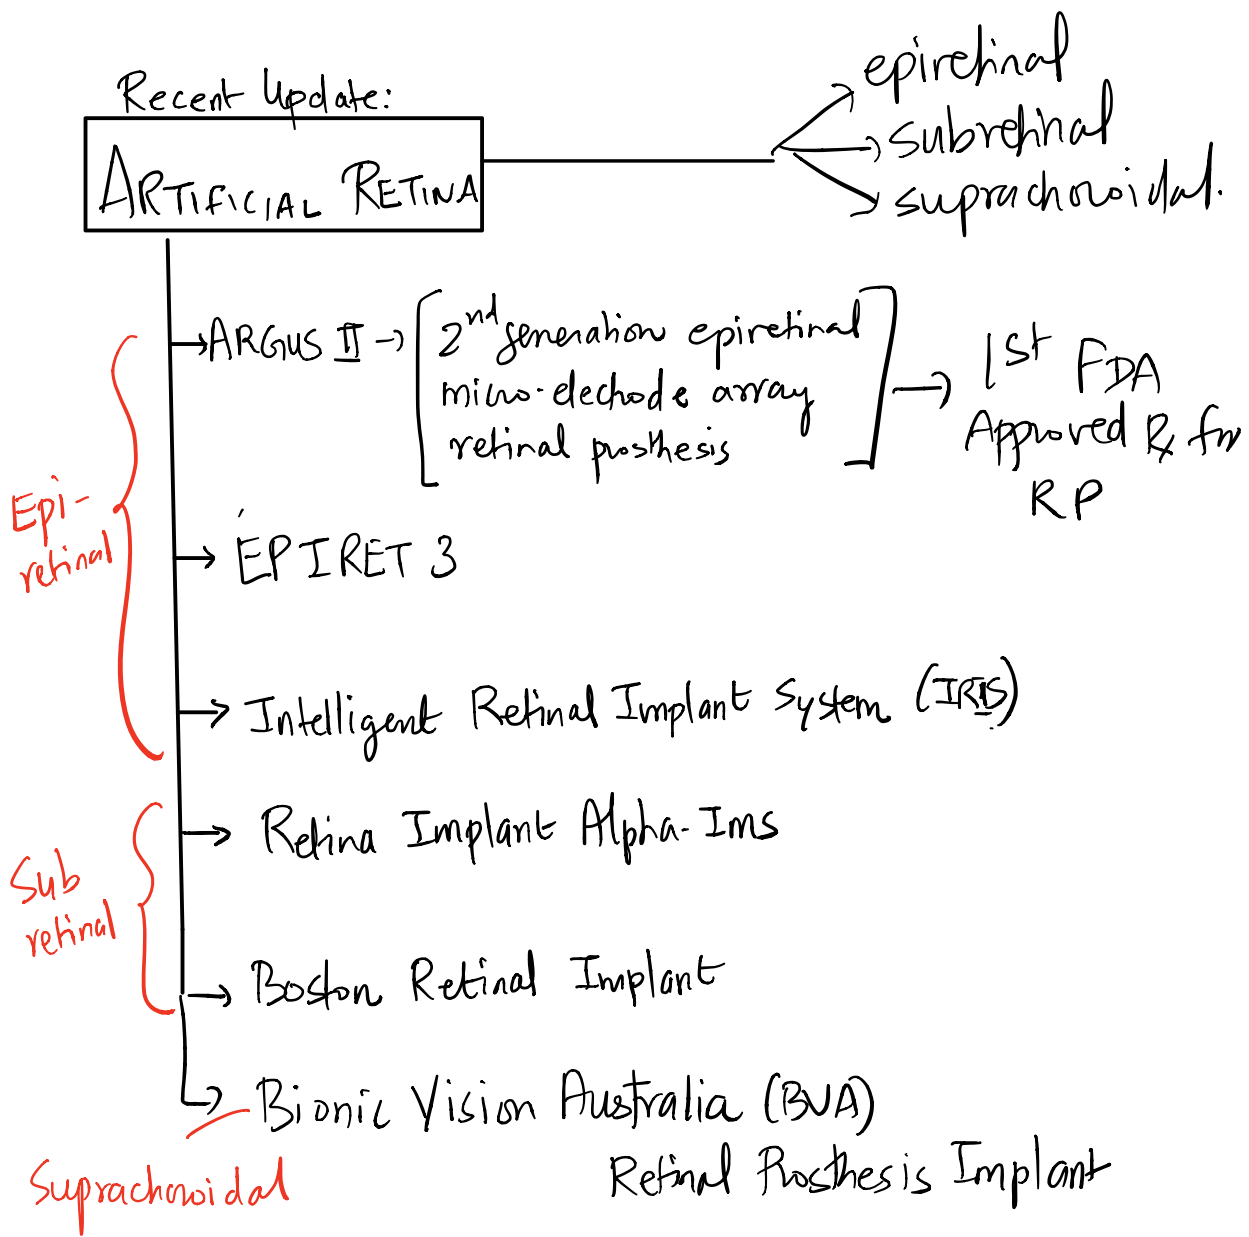 Recent Update:
ARTIFICIAL RETINA
epiretinal
subretinal
suprachoroidal.
ARGUS II
2nd generation epiretinal
micro-electrode array
retinal prosthesis
1st FDA
Approved Rx for
RP
Epi-
retinal
EPIRET 3
Intelligent Retinal Implant System (IRIS)
Retina Implant Alpha-Ims
Sub
retinal
Boston Retinal Implant
Bionic Vision Australia (BVA)
Retinal Prosthesis Implant
Suprachoroidal